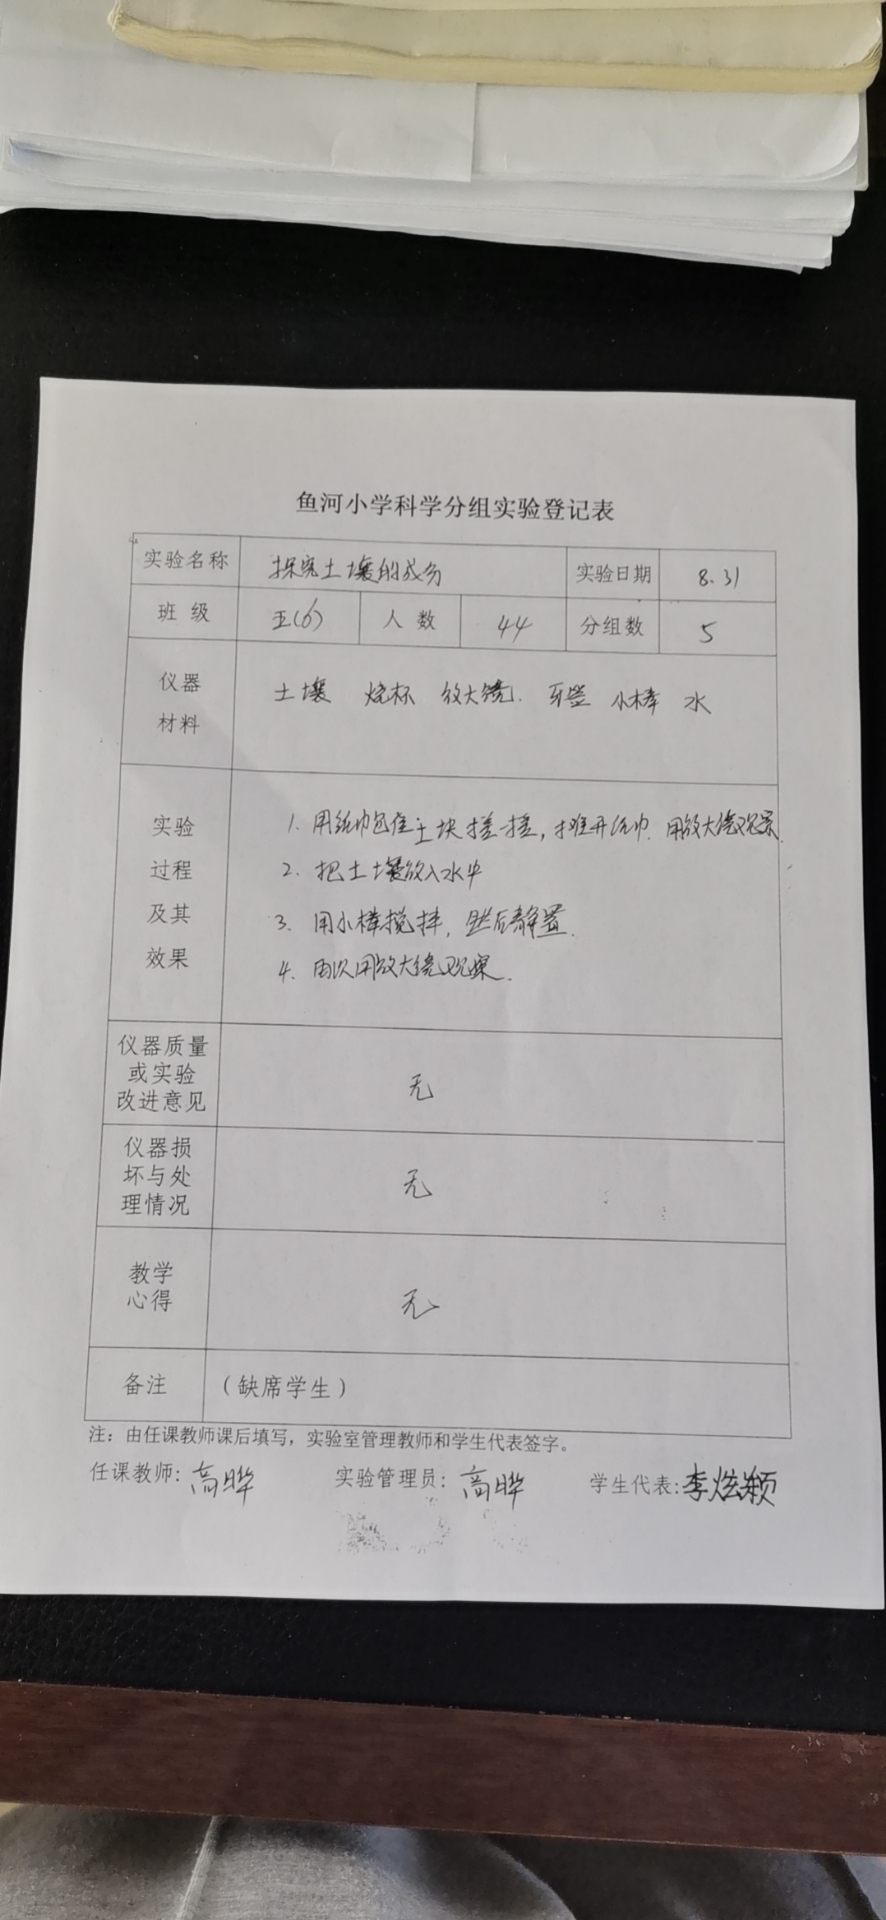 鱼河小学科学分组实验登记表
实验名称 探究土壤的成分 实验日期 8.31
班级 五(6) 人数 44 分组数 5
仪器 材料 土壤 烧杯 放大镜. 牙签 小棒 水
实验 过程 及其 效果
1. 用纸巾包住土块搓一搓，摊开纸巾. 用放大镜观察.
2. 把土壤放入水中
3. 用小棒搅拌，然后静置.
4. 再次用放大镜观察.
仪器质量
或实验
改进意见 无
仪器损
坏与处
理情况 无
教学
心得 无
备注 （缺席学生）
注：由任课教师课后填写，实验室管理教师和学生代表签字。
任课教师：高晔 实验管理员：高晔 学生代表：李炫颖